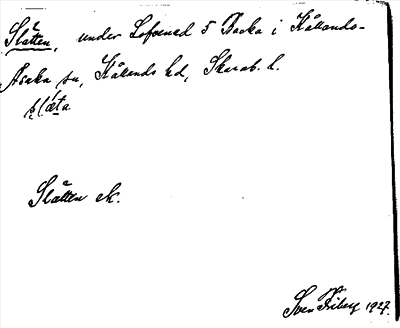 Slätten, under Lofsened 5 Backa i Kållands-
Åsaka sn, Kållands hd, Skarab. l.
slæta
Slätten ek.
Sven Friberg 1927.